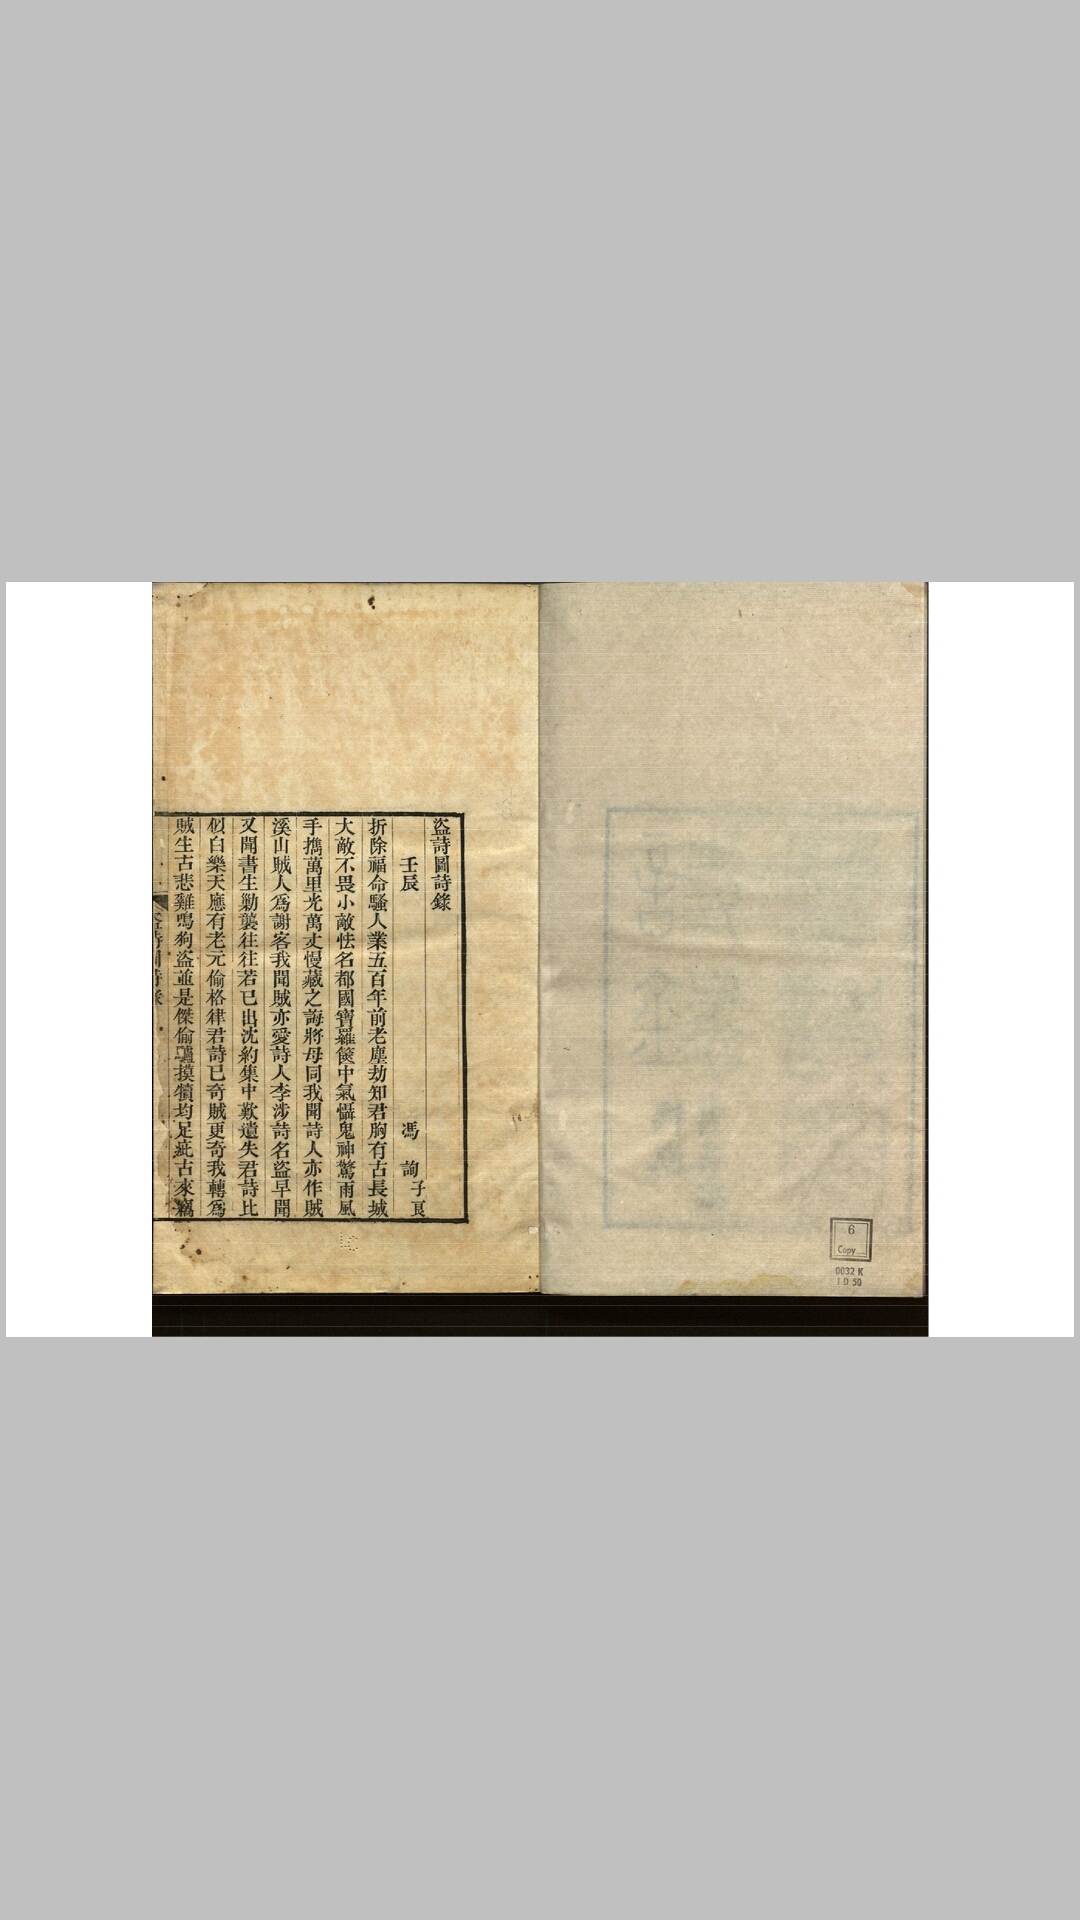 盜詩圖詩錄
壬辰 馮詢子良
折除福命騷人業五百年前老塵劫知君胸有古長城
大敵不畏小敵怯名都國寶羅篋中氣懾鬼神驚雨風
手攜萬里光萬丈慢藏之誨將母同我聞詩人亦作賊
溪山賊人爲謝客我聞賊亦愛詩人李涉詩名盜早聞
又聞書生勦襲往往若已出沈約集中歎遺失君詩比
似白樂天應有老元偷格律君詩已奇賊更奇我轉爲
賊生古悲雞鳴狗盜並是傑偷驢摸犢均足疵古來竊
盜詩圖詩錄
6
Copy
0032 K
I D 50